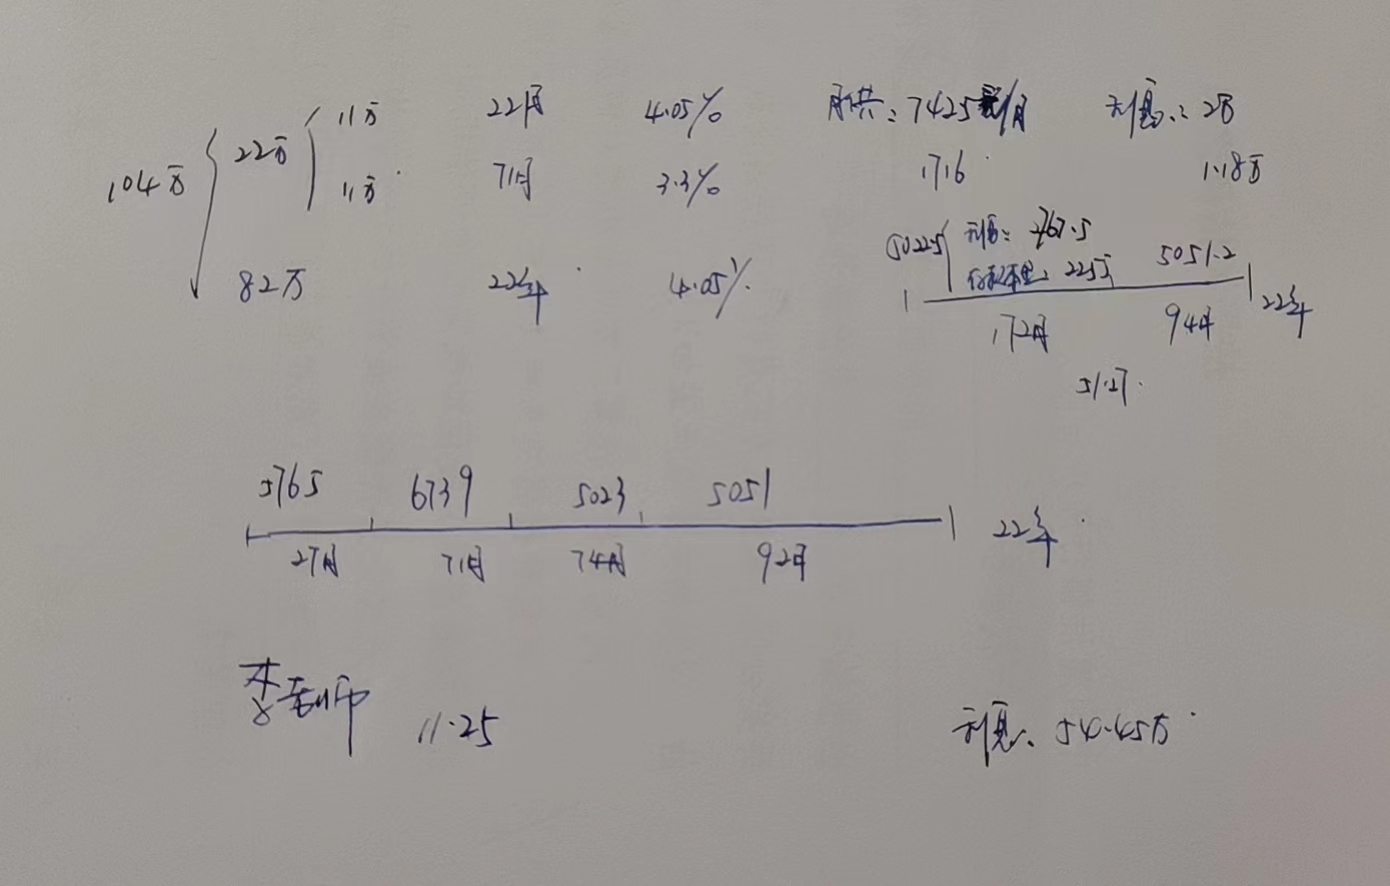 104万
22万
11万 22月 4.05% 月供: 7425 /月 利息: 2万
11万 71月 3.3% 1716 1.18万
82万 22年 4.05%
5022.5 利息: 2767.5
2255 5051.2
172月 94月 22年
51.27
5765 6739 5023 5051
27月 71月 74月 92月 22年
李老师 11.25 利息: 54.45万